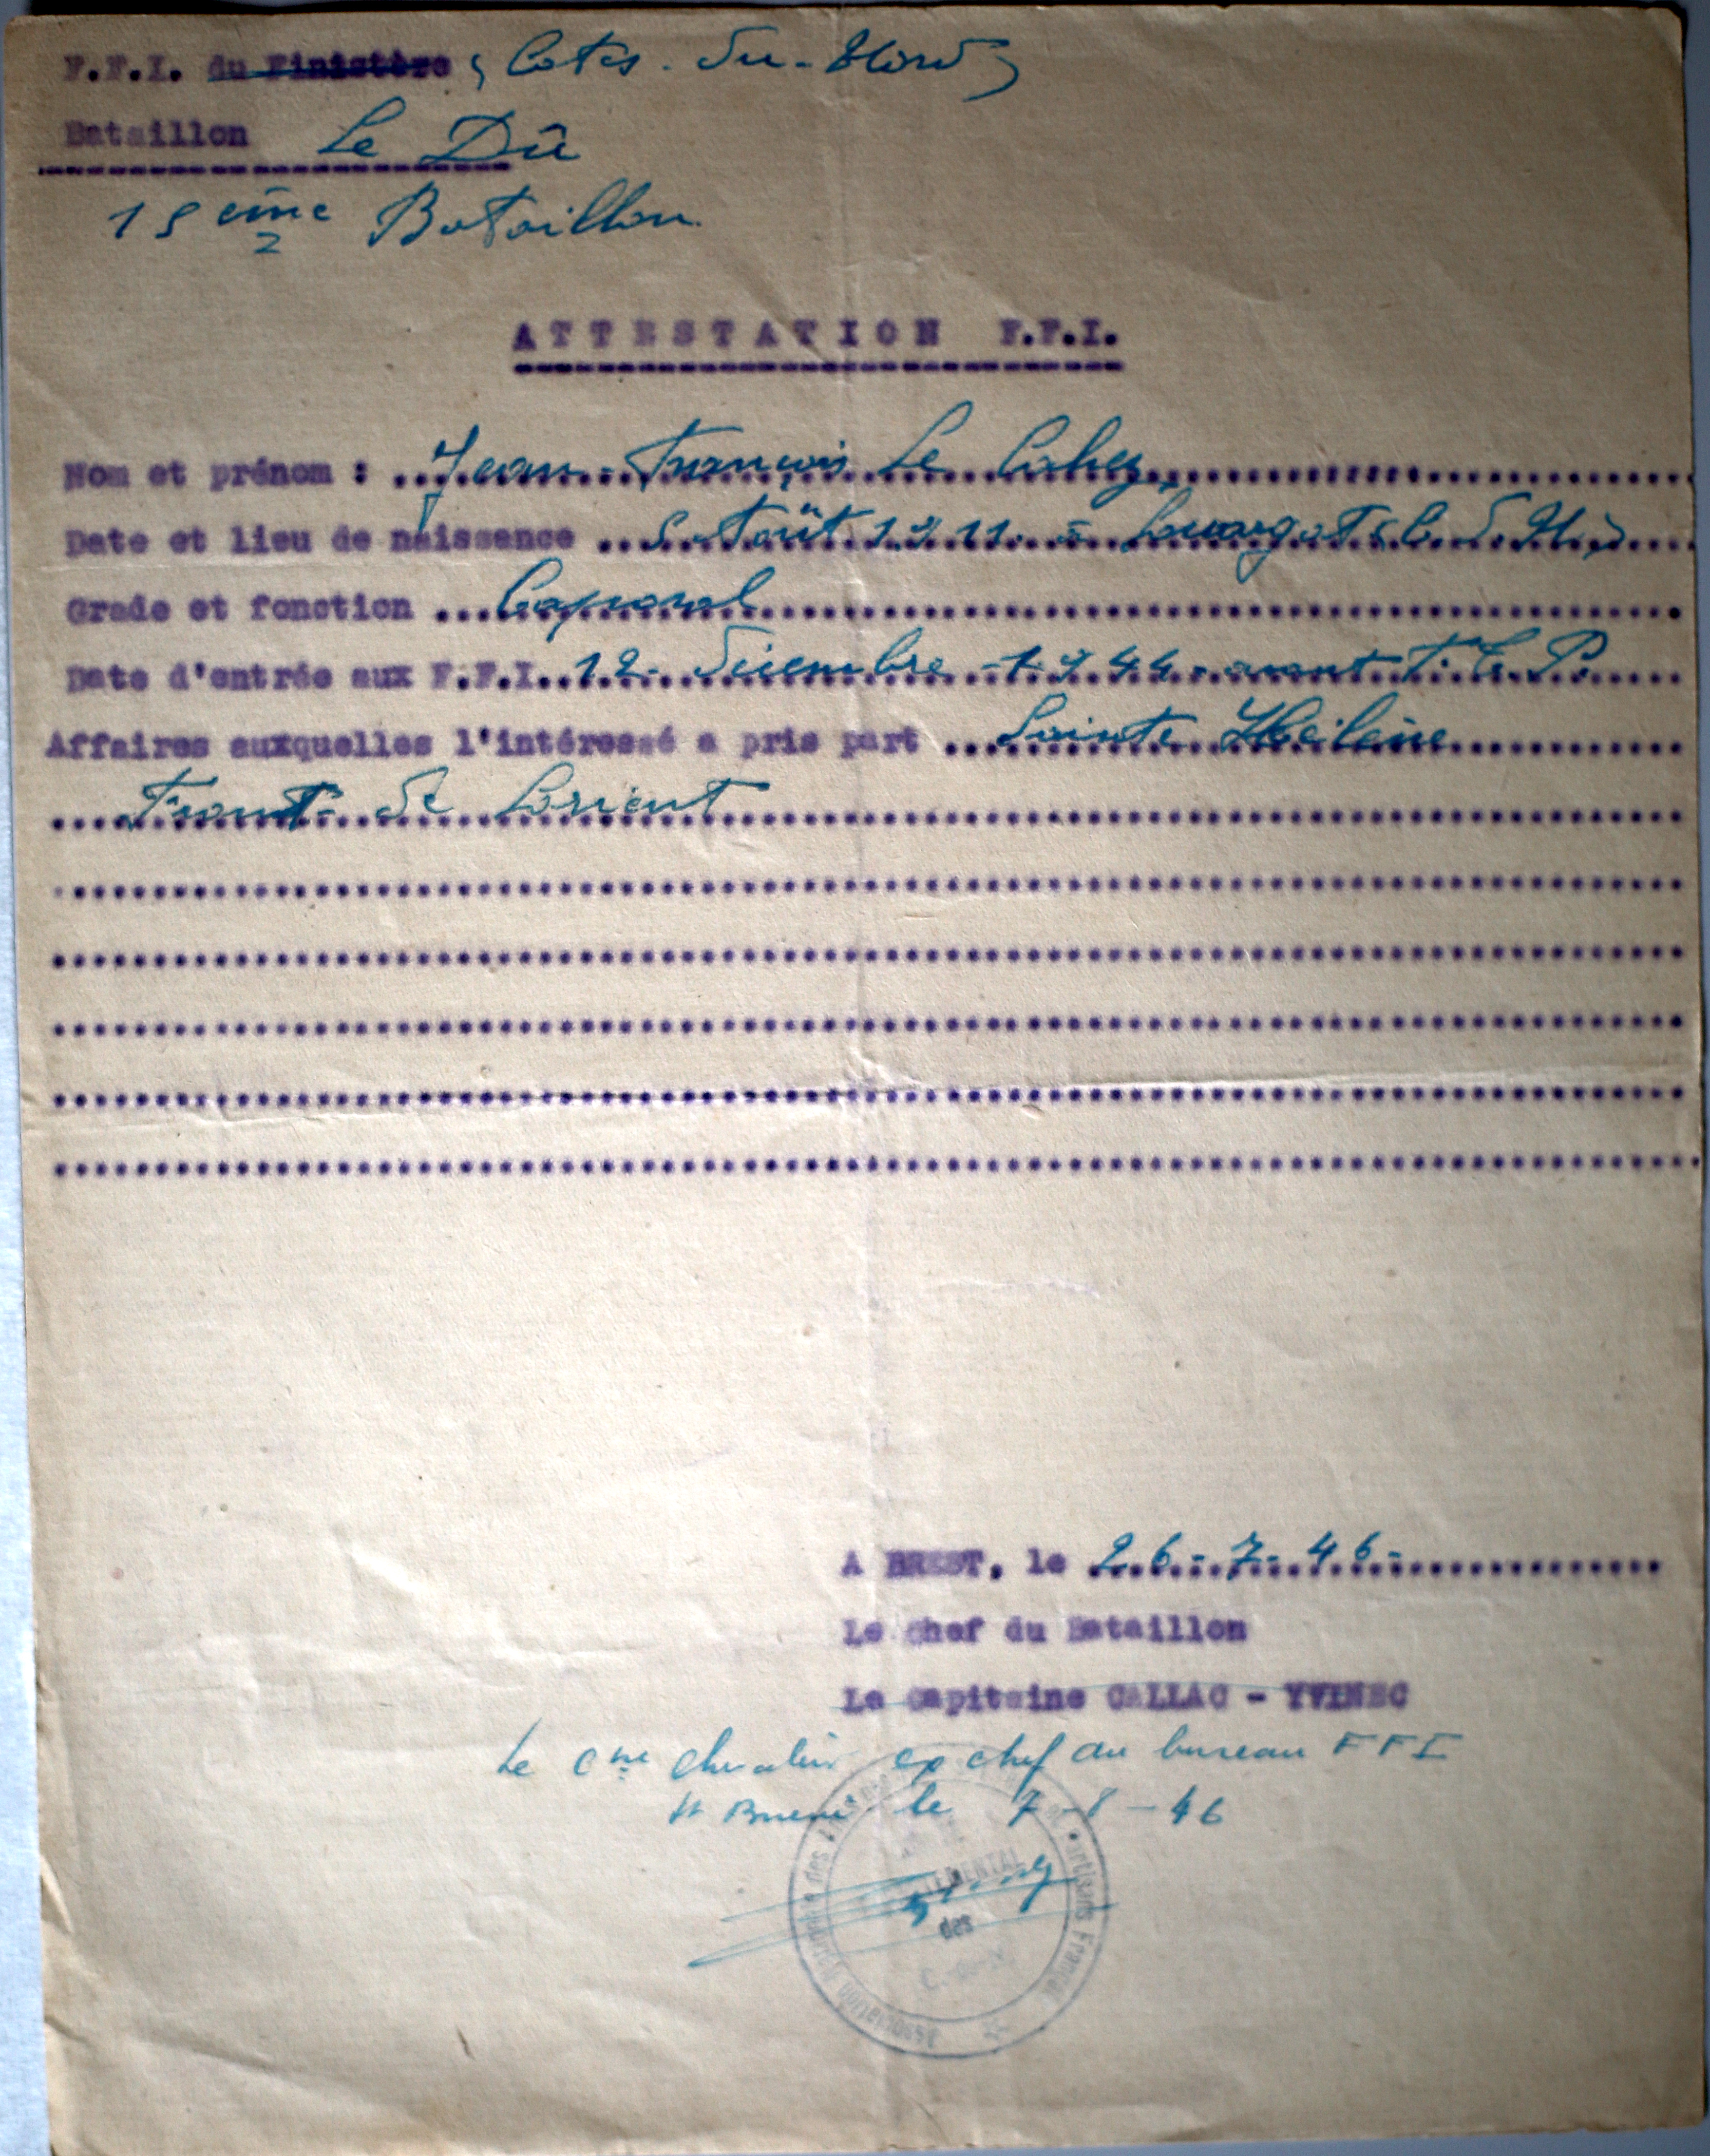 F.F.I. du Finistère (Cotes-du-Nord)
Bataillon Le Dû
15 eme Bataillon
ATTESTATION F.F.I.
Nom et prénom : Jean-François Le Cahez
Date et lieu de naissance 5 Août 1911 à Louargat (C.d.N.)
Grade et fonction Caporal
Date d'entrée aux F.F.I. 12 Décembre 1944 avant F.T.P.
Affaires auxquelles l'intéressé a pris part Sainte Hélène
Front de Lorient
A BREST, le 26-7-46-
Le Chef du Bataillon
Le Capitaine CALLAC - YVINEC
Le Cne Chevalier ex chef du bureau FFI
St Brieuc le 7-8-46
des
Association des artisans Français